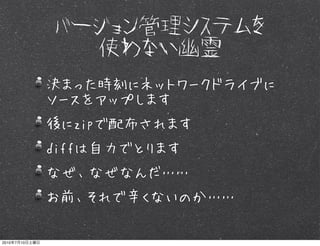 バージョン管理システムを
使めない幽霊
決まった時刻にネットワークドライブに
ソースをアップします
後にzipで配布されます
diffは自力でとります
なぜ、なぜなんだ……
お前、それで辛くないのか……
2010年7月10日土曜日